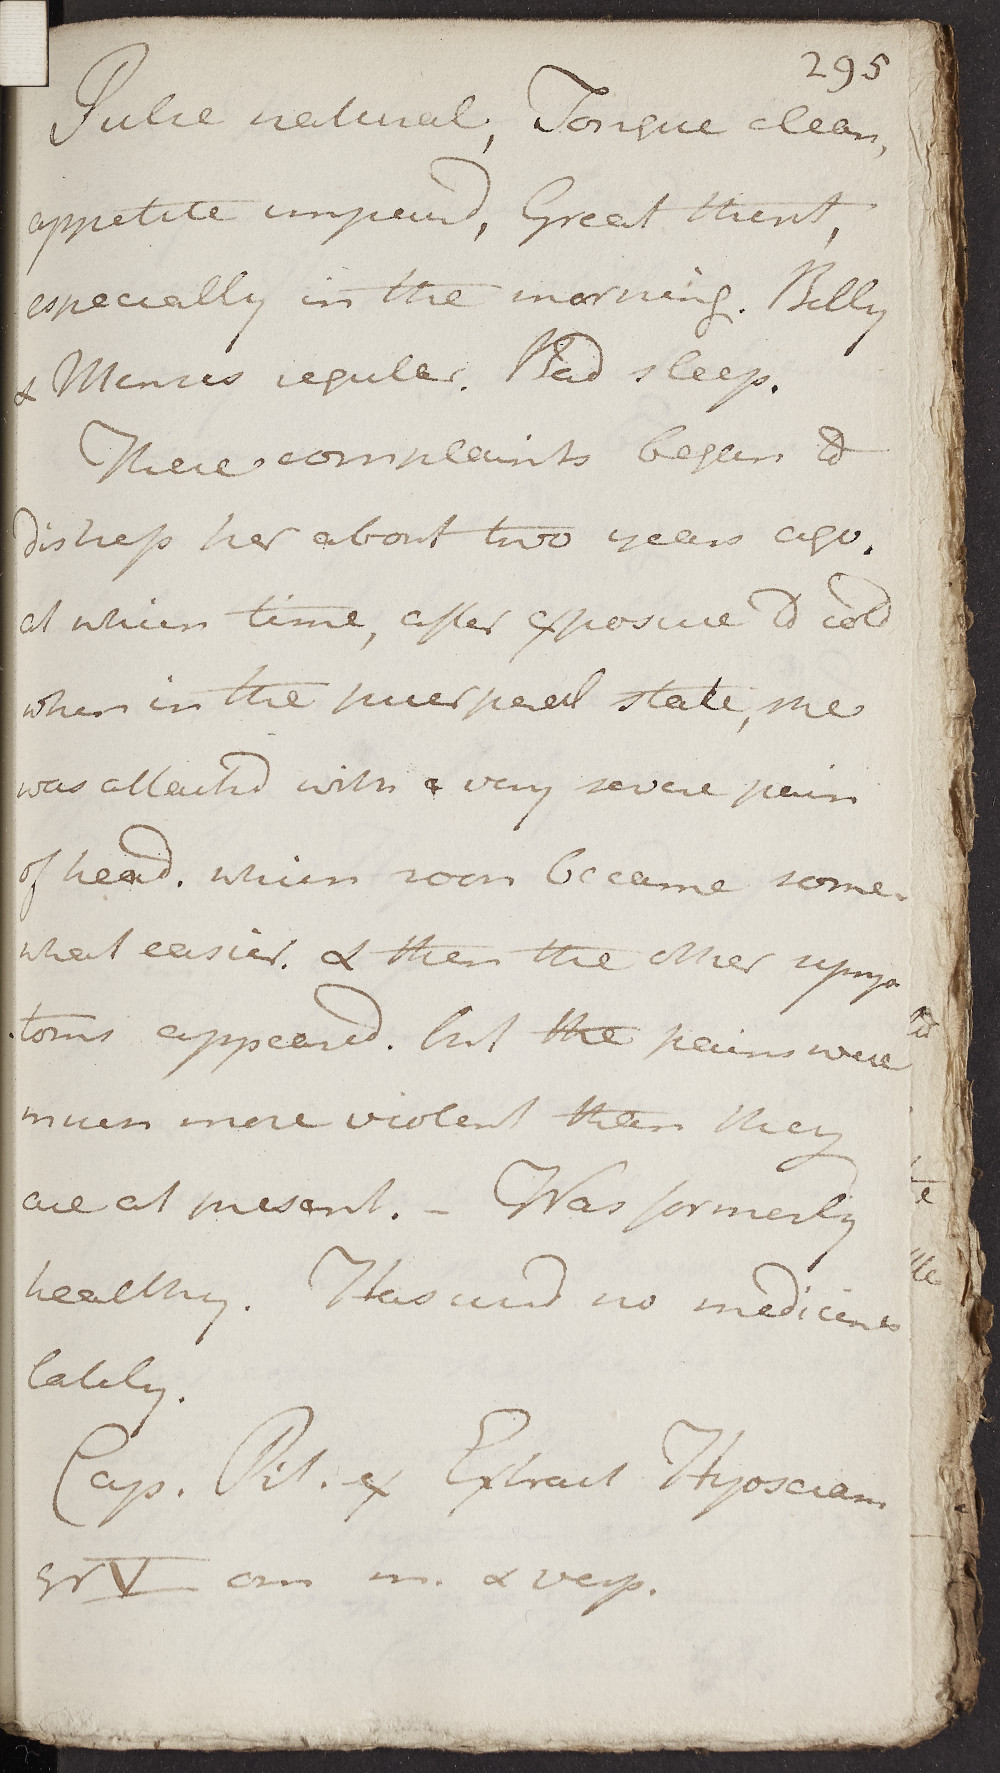 295
Pulse natural, Tongue clean,
appetite impaird, Great thirst,
especially in the morning. Belly
& Menses regular. Bad sleep.
These complaints began to
distress her about two years ago,
at which time, after exposure to cold
when in the puerperal state, she
was attacked with a very severe pain
of head. which soon became some-
what easier. & then the other symp
toms appeared. but the pains were
much more violent than they
are at present. - Was formerly
healthy. Has used no medicines
lately.
Cap. Pil. ex Extract Hyosciam
gr V om m. & vesp.